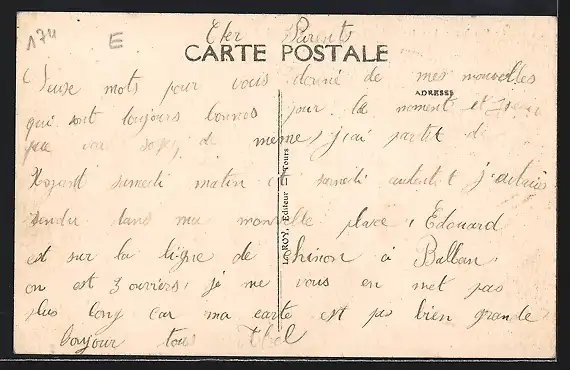 174 E Cher Parents
CARTE POSTALE
Deuse mots pour vous donné de mes nouvelles
ADRESSE
qui sont toujours bonnes pour le moment et
que vou soyez de meme, j'ai partit de
samedi matin et samedi j'autais
rendu dans ma nouvelle place, Edouard
est sur la ligne de chinon à Ballan,
on est 3 ouvriers, je me vous en met pas
plus long car ma carte est pas bien grande
bonjour tous
LA ROY, Éditeur Tours